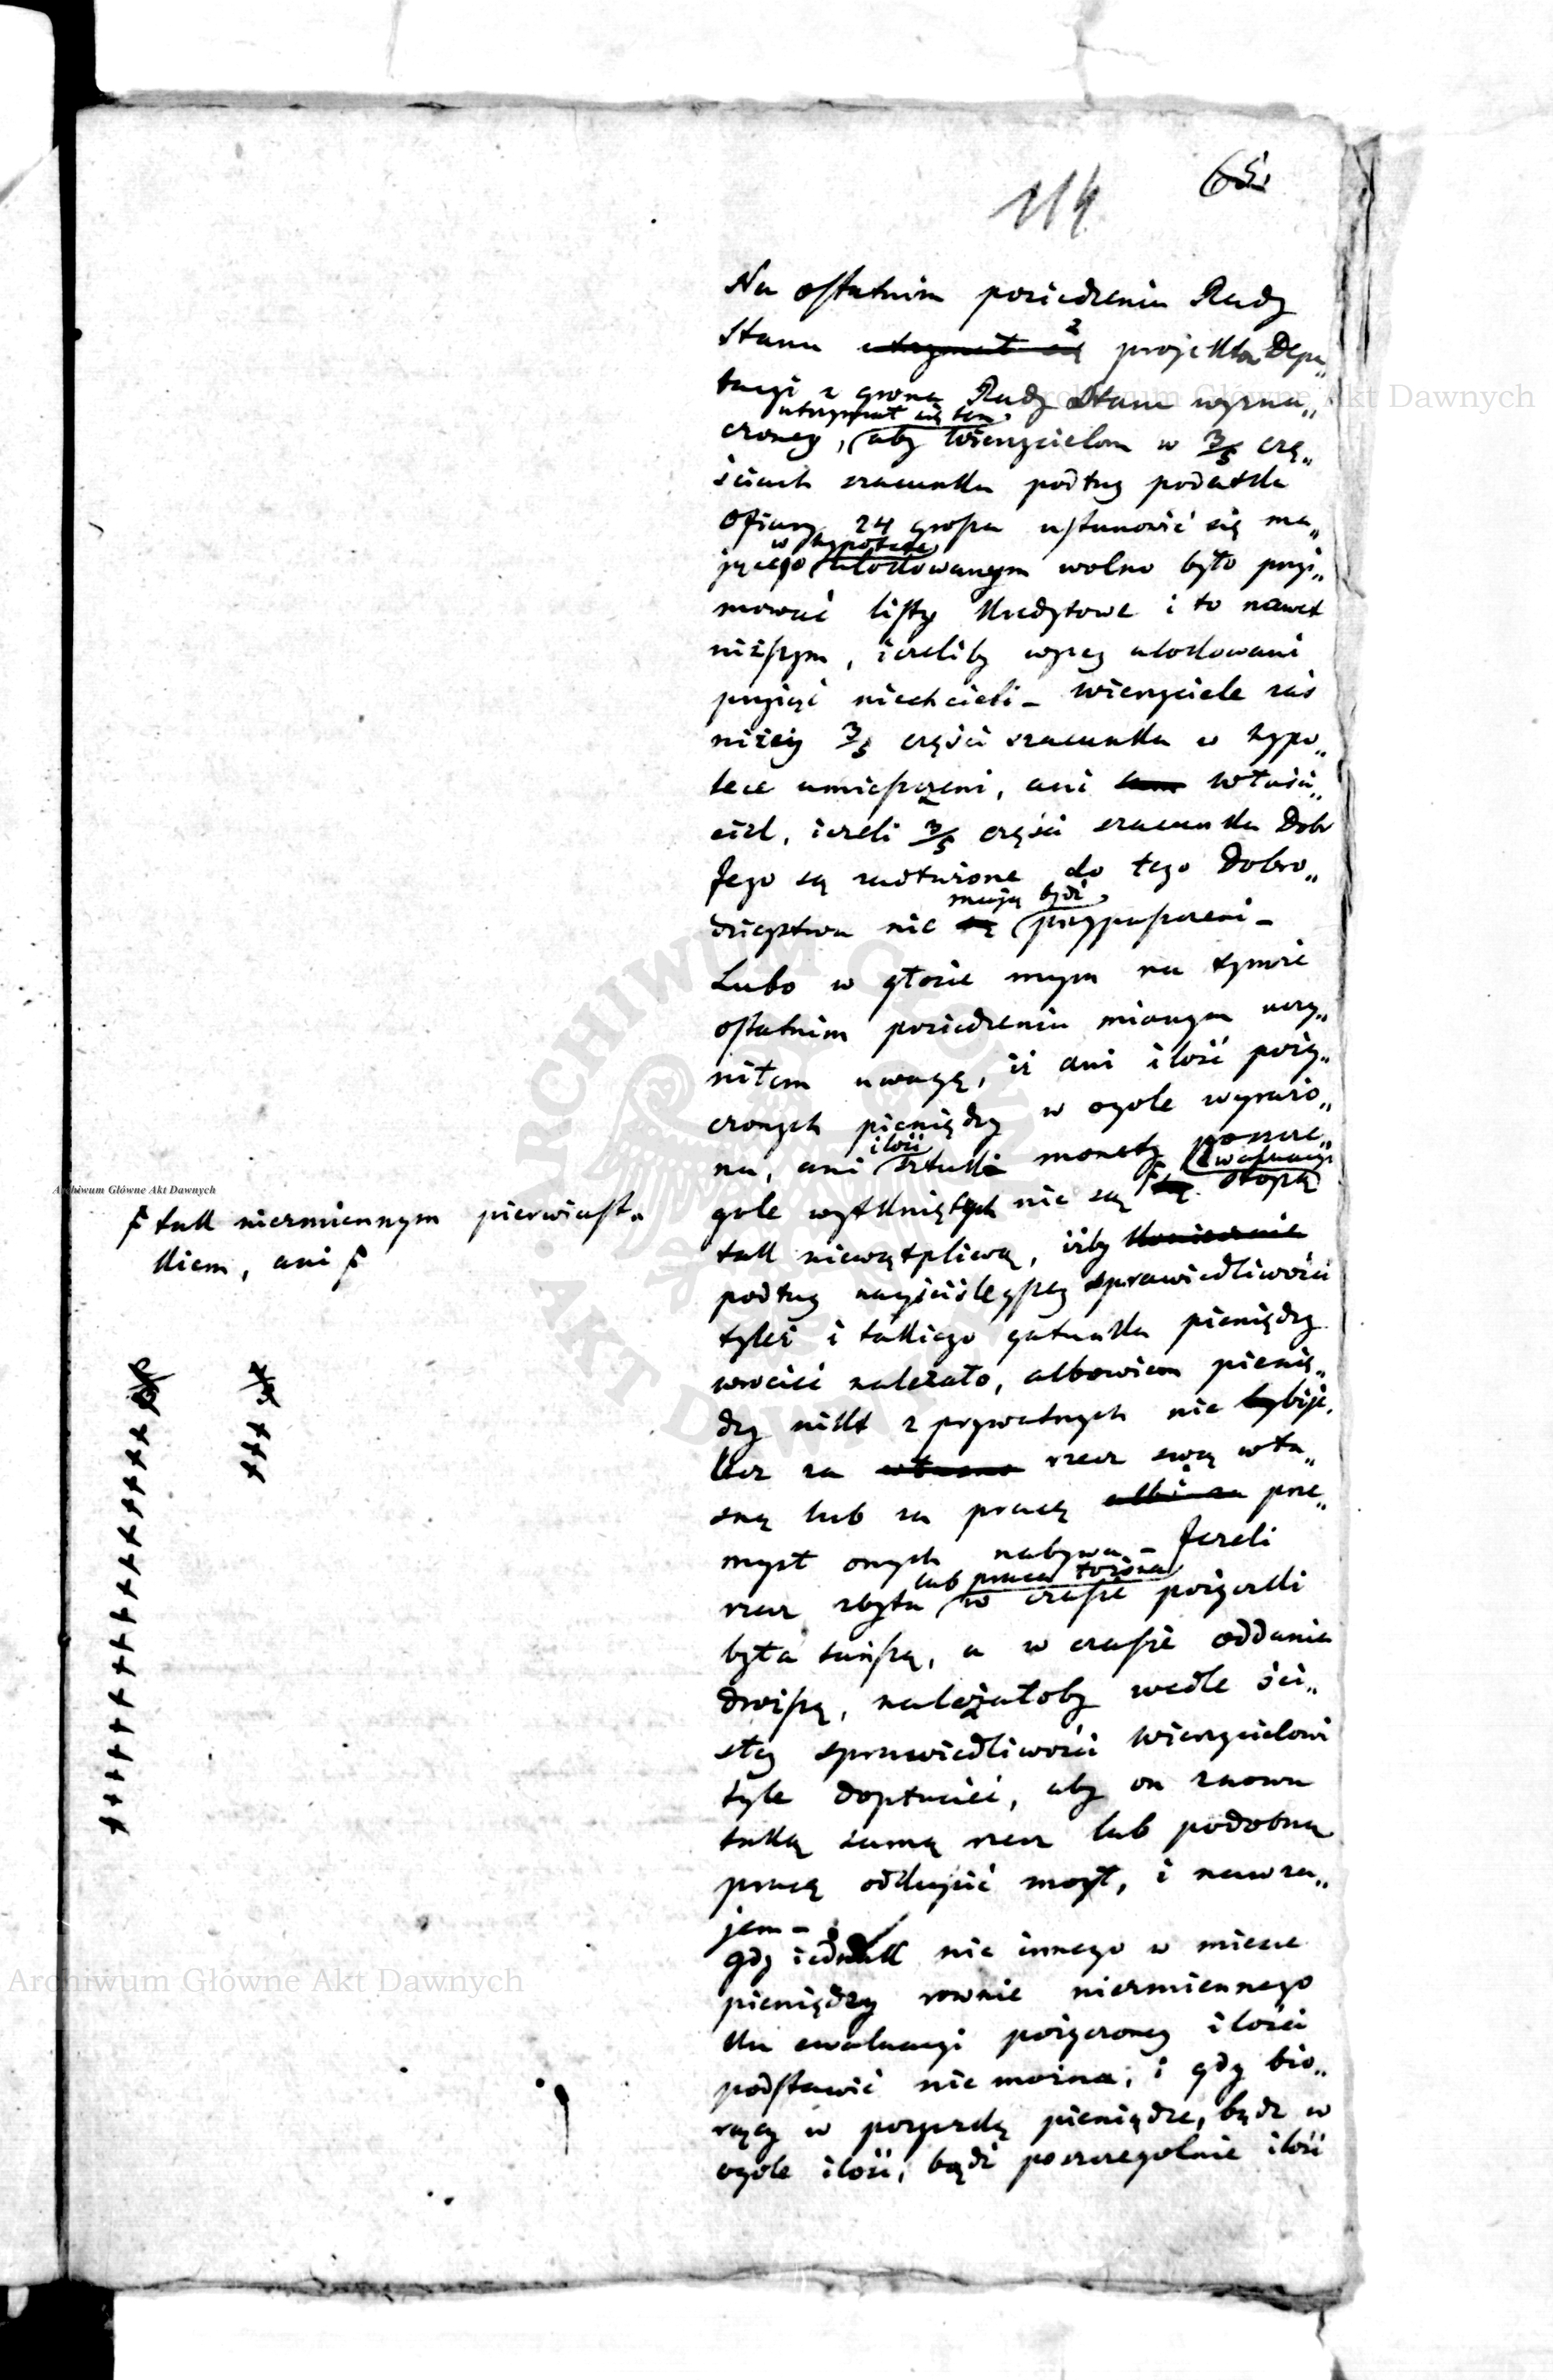 114 65.
Na ostatnim posiedzeniu Rady
Stanu utrzymał się 2 projekta Depu„
tacyi z grona Rady Stanu wyzna„
utrzymał się ten
czoney, aby Wierzycielom w 3/5 czę„
ściach szacunku podług podatku
Ofiary 24 grosza ustanowić się ma„
w hypotece
jącego ulokowanym wolno było przyi„
mować listy kredytowe i to nawet
niższym, ieżeliby wyżey ulokowani
przyiąć niechcieli – Wierzyciele zaś
niżey 3/5 części szacunku w hypo„
tece umieszczeni, ani sam Właści„
ciel, ieżeli 3/5 części szacunku Dóbr
Jego są zadłużone do tego Dobro„
maią bydź
dzieystwa nie są przypuszczeni –
Lubo w głosie moym na tymże
ostatnim posiedzeniu mianym uczy„
niłem uwagę, iż ani ilość poży„
czonych pieniędzy w ogole wyrażo„
ilość
na, ani sztuki monety poszcze„
ewaluacyi
gole wytkniętych nie są stopą
tak niezmiennym pierwiast„
kiem, ani
tak niewątpliwą, iżby koniecznie
podług nayściśleyszey sprawiedliwości
tyleż i takiego gatunku pieniędzy
wrócić należało, albowiem pienię„
dzy nikt z prywatnych nie bije,
lecz za własno rzecz swą wła„
sną lub za pracę albo za prze„
mysł onych nabywa – Jeżeli
lub praca łożona
rzecz zbyta w czasie pożyczki
była tańszą, a w czasie oddania
droższą, należałoby wedle ści„
słey sprawiedliwości Wierzycielowi
tyle dopłacić, aby on znowu
taką samą rzecz lub podobną
pracę odkupić mogł, i nawza„
jem –
gdy iednak nic innego w miesce
pieniędzy rownie niezmiennego
ku ewaluacyi pożyczoney ilości
podstawić nie można, i gdy bio„
rący w pożyczkę pieniądze, bądź w
ogole ilość, bądź poszczegolnie ilość
Archiwum Główne Akt Dawnych